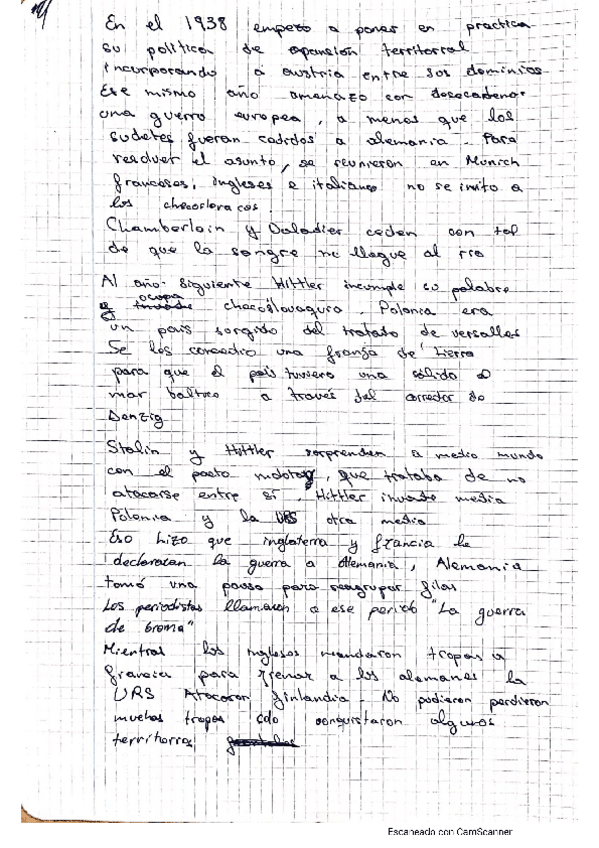 En el 1938 empezo a poner en practica
su politica de expansión territorral
incorporando a austria entre sus dominios
Ese mismo año amenazo con desecadenar
una guerra europea, a menos que los
sudetes fueran cedidos a alemania. Para
resolver el asunto, se reunieron en Munich
franceses, ingleses e italianos no se invito a
los checoslovacos.
Chamberlain y Daladier ceden con tal
de que la sangre no llegue al rio
Al año siguiente Hittler incumple su palabra
y ocupa checoslovaquia. Polonia era
un pais surgido del tratado de versalles
Se les concedio una franja de tierra
para que el pais tuviera una salida al
mar baltico a través del corredor de
Denzig
Stalin y Hittler sorprenden a medio mundo
con el pacto molotov, que trataba de no
atacarse entre sí. Hittler invade media
Polonia y la URS otra media
Eso hizo que inglaterra y francia le
declararan la guerra a Alemania, Alemania
tomó una pausa para reagrupar filas
Los periodistas llamaron a ese periodo "La guerra
de broma"
Mientras los inglesos mandaron tropas a
francia para frenar a los alemanes la
URS Atacaron finlandia. No pudieron perdieron
muchas tropas solo conquistaron algunos
territorros
Escaneado con CamScanner